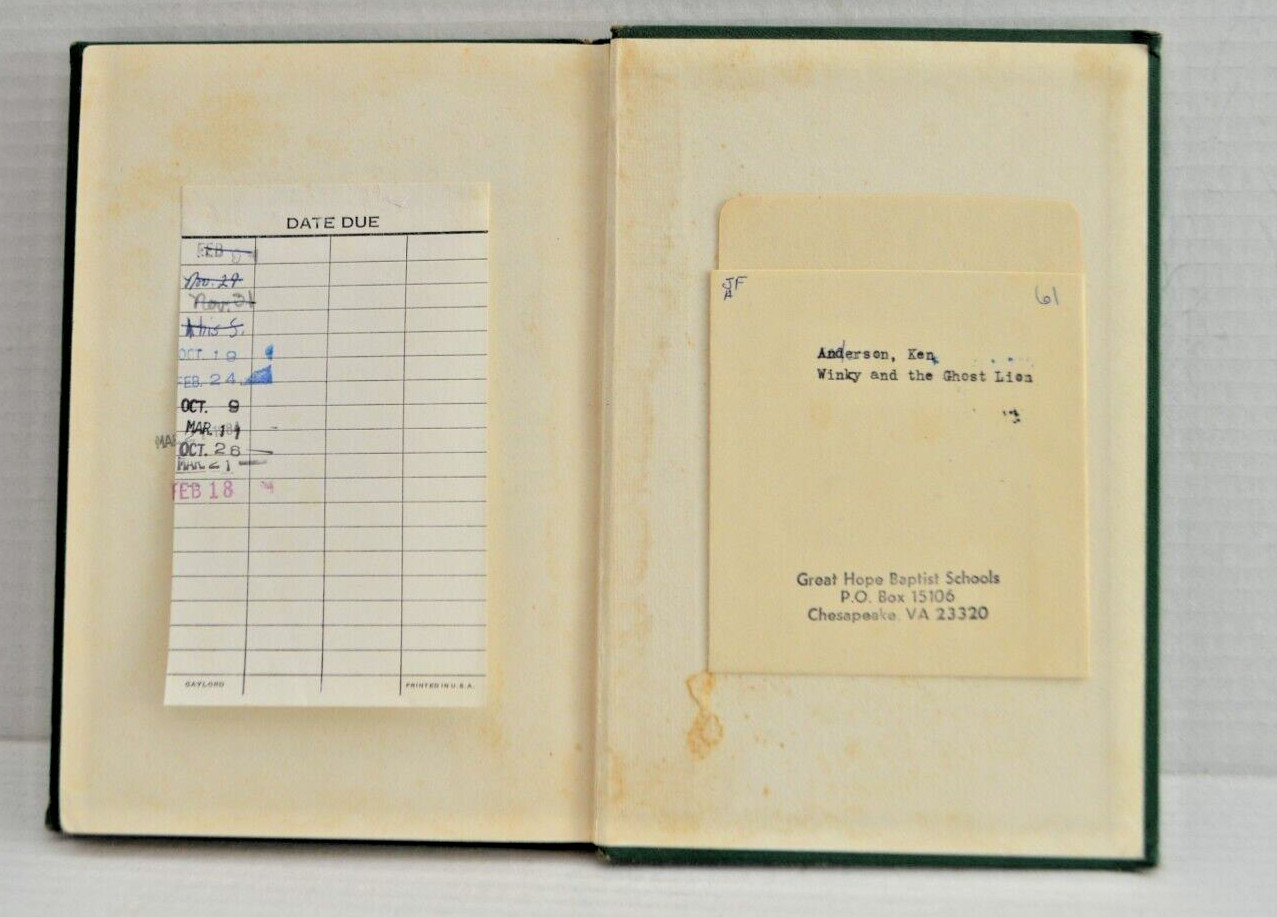 DATE DUE
FEB
Nov. 29
Nov. 21
OCT. 19
FEB. 24
OCT. 9
MAR. 11
MAR
OCT. 26
MAR 21
FEB 18
GAYLORD
PRINTED IN U.S.A.
JF
A
61
Anderson, Ken
Winky and the Ghost Lion
Great Hope Baptist Schools
P.O. Box 15106
Chesapeake, VA 23320